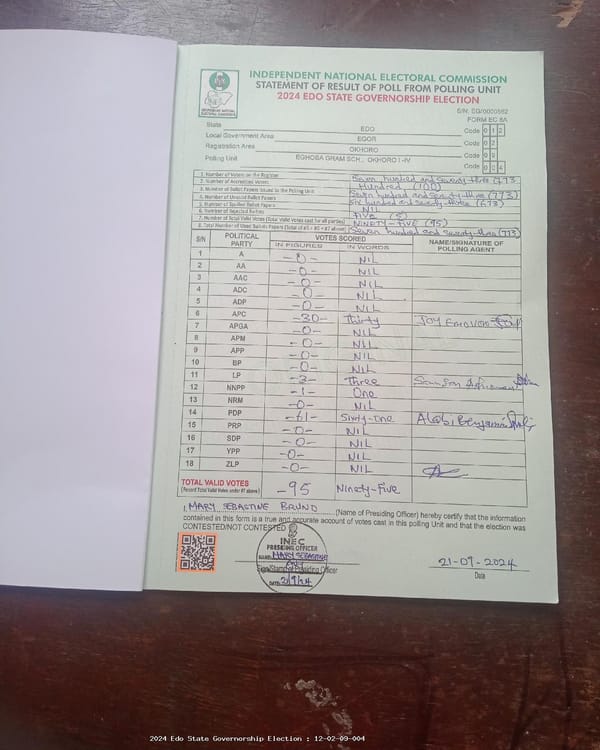 INDEPENDENT NATIONAL ELECTORAL COMMISSION
STATEMENT OF RESULT OF POLL FROM POLLING UNIT
2024 EDO STATE GOVERNORSHIP ELECTION
FORM EC 8A
State EDO Code 0 1 2
Local Government Area EGOR Code 0 2
Registration Area OKHORO Code 0 9
Polling Unit EGHOBA GRAM SCH., OKHORO I-IV Code 0 0 4
1. Number of Voters on the Register Seven hundred and seventy three (773
2. Number of Accredited Voters Hundred (100)
3. Number of Ballot Papers Issued to the Polling Unit Seven hundred and seventy-three (773)
4. Number of Unused Ballot Papers Six hundred and seventy-three (673)
5. Number of Spoiled Ballot Papers NIL
6. Number of Rejected Ballots FIVE (5)
7. Number of Total Valid Votes (Total Valid Votes cast for all parties) NINETY-FIVE (95)
8. Total Number of Used Ballot Papers (Total of #5 + #6 + #7 above) Seven hundred and seventy-three (773)
S/N POLITICAL PARTY VOTES SCORED NAME/SIGNATURE OF POLLING AGENT
IN FIGURES IN WORDS
1 A -0- NIL
2 AA -0- NIL
3 AAC -0- NIL
4 ADC -0- NIL
5 ADP -0- NIL
6 APC -30- Thirty JOY
7 APGA -0- NIL
8 APM -0- NIL
9 APP -0- NIL
10 BP -0- NIL
11 LP -3- Three
12 NNPP -1- One
13 NRM -0- NIL
14 PDP -61- Sixty-One Alabi Benjamin
15 PRP -0- NIL
16 SDP -0- NIL
17 YPP -0- NIL
18 ZLP -0- NIL
TOTAL VALID VOTES -95 Ninety-Five
(Record Total Valid Votes under #7 above)
I, MARY SEBASTINE BRUNO (Name of Presiding Officer) hereby certify that the information
contained in this form is a true and accurate account of votes cast in this polling Unit and that the election was
CONTESTED/NOT CONTESTED
INEC
PRESIDING OFFICER
NAME: MARY SEBASTINE
Sign/Stamp of Presiding Officer
DATE: 21/9/24
21-09-2024
Date
2024 Edo State Governorship Election : 12-02-09-004